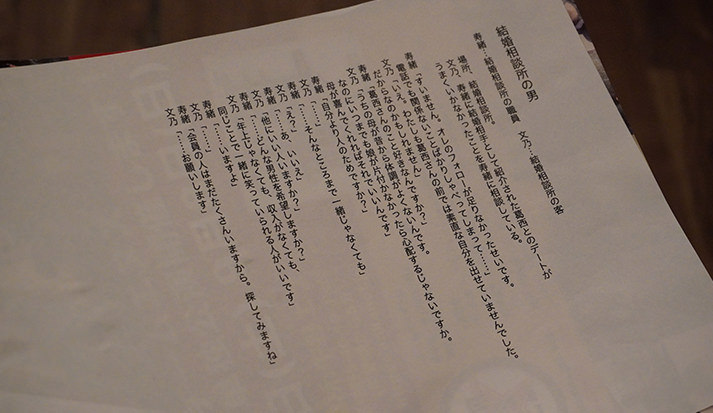 結婚相談所の男
寿緒…結婚相談所の職員　文乃…結婚相談所の客
場所、結婚相談所。
文乃、寿緒に結婚相手として紹介された葛西とのデートが
うまくいかなかったことを寿緒に相談している。
寿緒「すいません。オレのフォローが足りなかったせいです。
電話でも関係ないことばかりしゃべってしまって……」
文乃「いえ。わたしも葛西さんの前では素直な自分を出せていませんでした。
だからなのかもしれません」
寿緒「葛西さんのこと好きなんですか？」
文乃「うちの母が昔から体調がよくないんです。
なのにいつまでも娘が片付かなかったら心配するじゃないですか。
母が喜んでくれればそれでいいんです」
寿緒「自分より人のためですか？」
文乃「……」
寿緒「……そんなところまで一緒じゃなくても」
文乃「えっ？」
寿緒「……あ、いいえ」
文乃「他にいい人いますか？」
寿緒「……どんな男性を希望しますか？」
文乃「年上じゃなくても、収入がなくても、
同じことで一緒に笑っていられる人がいいです」
寿緒「……いますよ」
文乃「……」
寿緒「会員の人はまだたくさんいますから。探してみますね」
文乃「……お願いします」